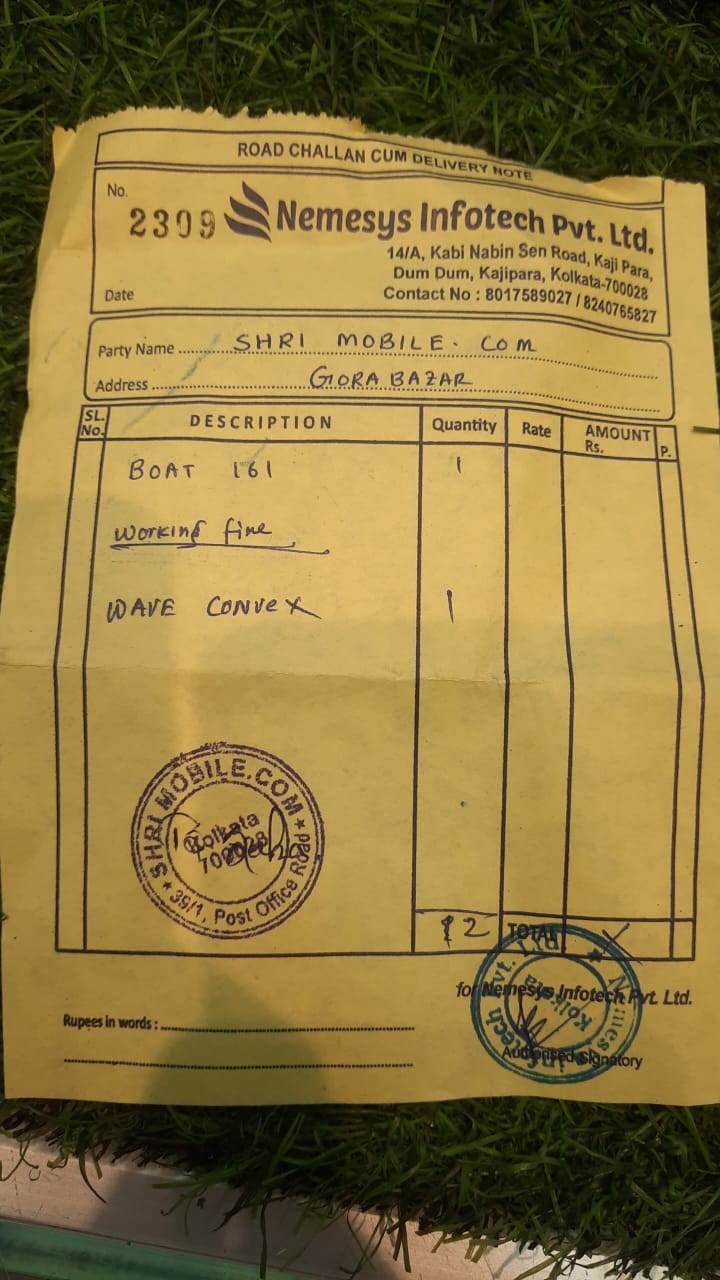 ROAD CHALLAN CUM DELIVERY NOTE
No.
2309
Nemesys Infotech Pvt. Ltd.
14/A, Kabi Nabin Sen Road, Kaji Para,
Dum Dum, Kajipara, Kolkata-700028
Date
Contact No : 8017589027 / 8240765827
Party Name SHRI MOBILE. COM
Address GORA BAZAR
SL. No. DESCRIPTION Quantity Rate AMOUNT Rs. P.
BOAT 161 1
working fine
WAVE CONVEX 1
SHRI MOBILE.COM
Kolkata
700028
39/1, Post Office Road
2 TOTAL
for Nemesys Infotech Pvt. Ltd.
Nemesys Infotech Pvt. Ltd.
Rupees in words :
Authorised Signatory